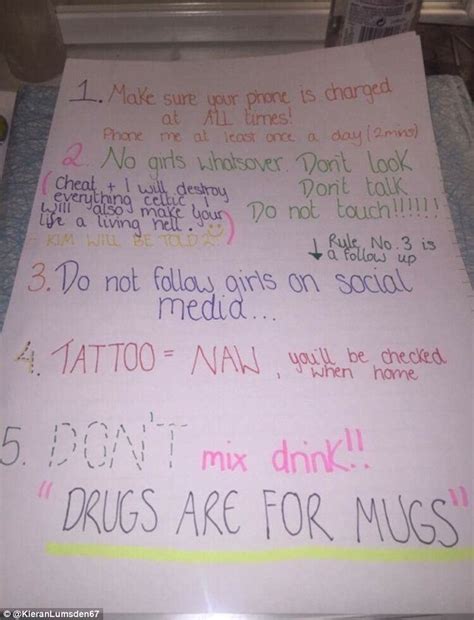 1. Make sure your phone is charged
at ALL times!
Phone me at least once a day (2mins)
2. No girls whatsover. Don't look
Don't talk
Do not touch!!!!!!
(Cheat + I will destroy
everything celtic. I
will also make your
life a living hell.)
KIM WILL BE TOLD
↓ Rule No. 3 is
a follow up
3. Do not follow girls on social
media...
4. TATTOO = NAW, you'll be checked
when home
5. DON'T mix drink!!
"DRUGS ARE FOR MUGS"
© @KieranLumsden67